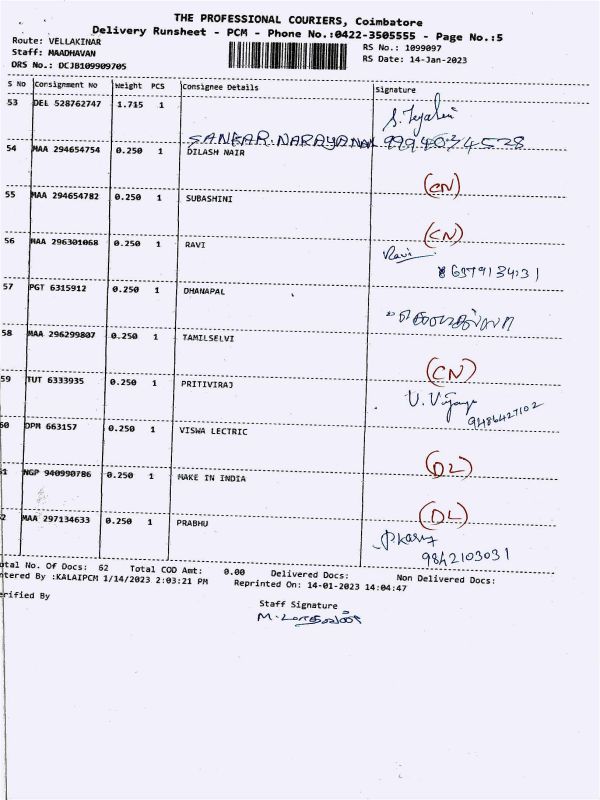 THE PROFESSIONAL COURIERS, Coimbatore
Delivery Runsheet - PCM - Phone No.:0422-3505555 - Page No.:5
Route: VELLAKINAR
RS No.: 1099097
Staff: MAADHAVAN
RS Date: 14-Jan-2023
DRS No.: DCJB109909705
S No Consignment No Weight PCS Consignee Details Signature
53 DEL 528762747 1.715 1
SANKAR.NARAYANAN 9994034528
54 MAA 294654754 0.250 1 DILASH NAIR
(CN)
55 MAA 294654782 0.250 1 SUBASHINI
(CN)
56 MAA 296301068 0.250 1 RAVI Ravi
57 PGT 6315912 0.250 1 DHANAPAL
58 MAA 296299807 0.250 1 TAMILSELVI
(CN)
59 TUT 6333935 0.250 1 PRITIVIRAJ
9486427102
60 DPM 663157 0.250 1 VISWA LECTRIC
(DL)
1 NGP 940990786 0.250 1 MAKE IN INDIA
(DL)
2 MAA 297134633 0.250 1 PRABHU
9842103031
otal No. Of Docs: 62 Total COD Amt: 0.00 Delivered Docs: Non Delivered Docs:
ntered By :KALAIPCM 1/14/2023 2:03:21 PM Reprinted On: 14-01-2023 14:04:47
erified By
Staff Signature